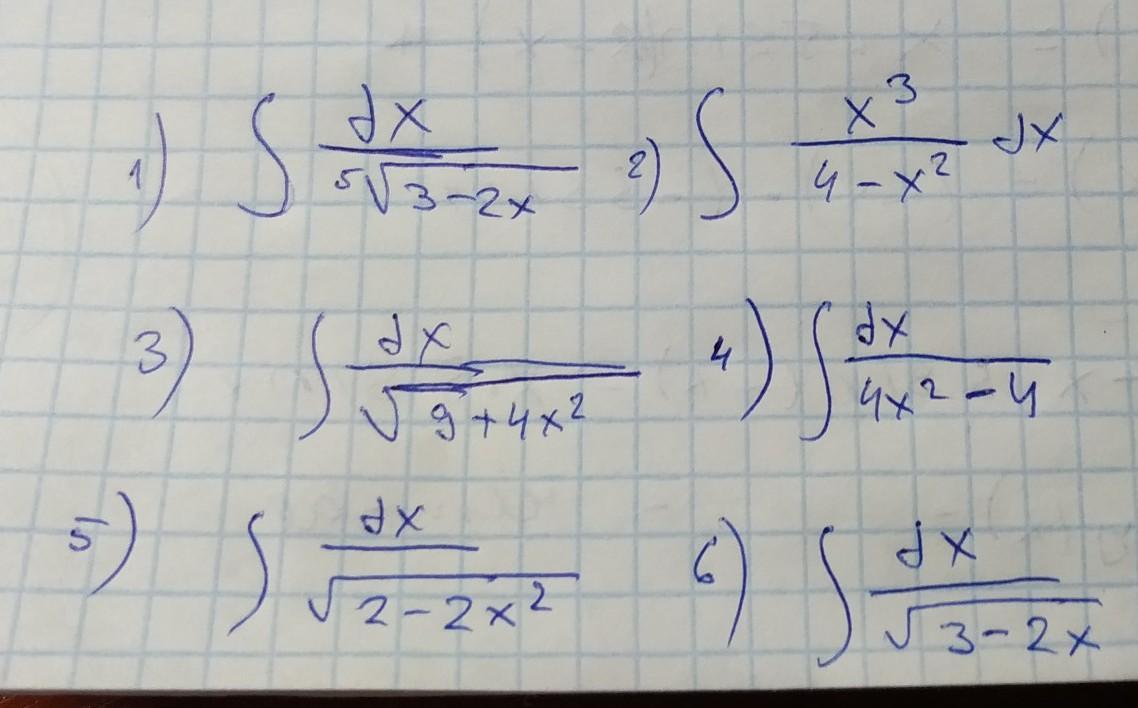 1) ∫ dx / ⁵√(3-2x) 2) ∫ x³ / (4-x²) dx
3) ∫ dx / √(9+4x²) 4) ∫ dx / (4x²-4)
5) ∫ dx / √(2-2x²) 6) ∫ dx / √(3-2x)